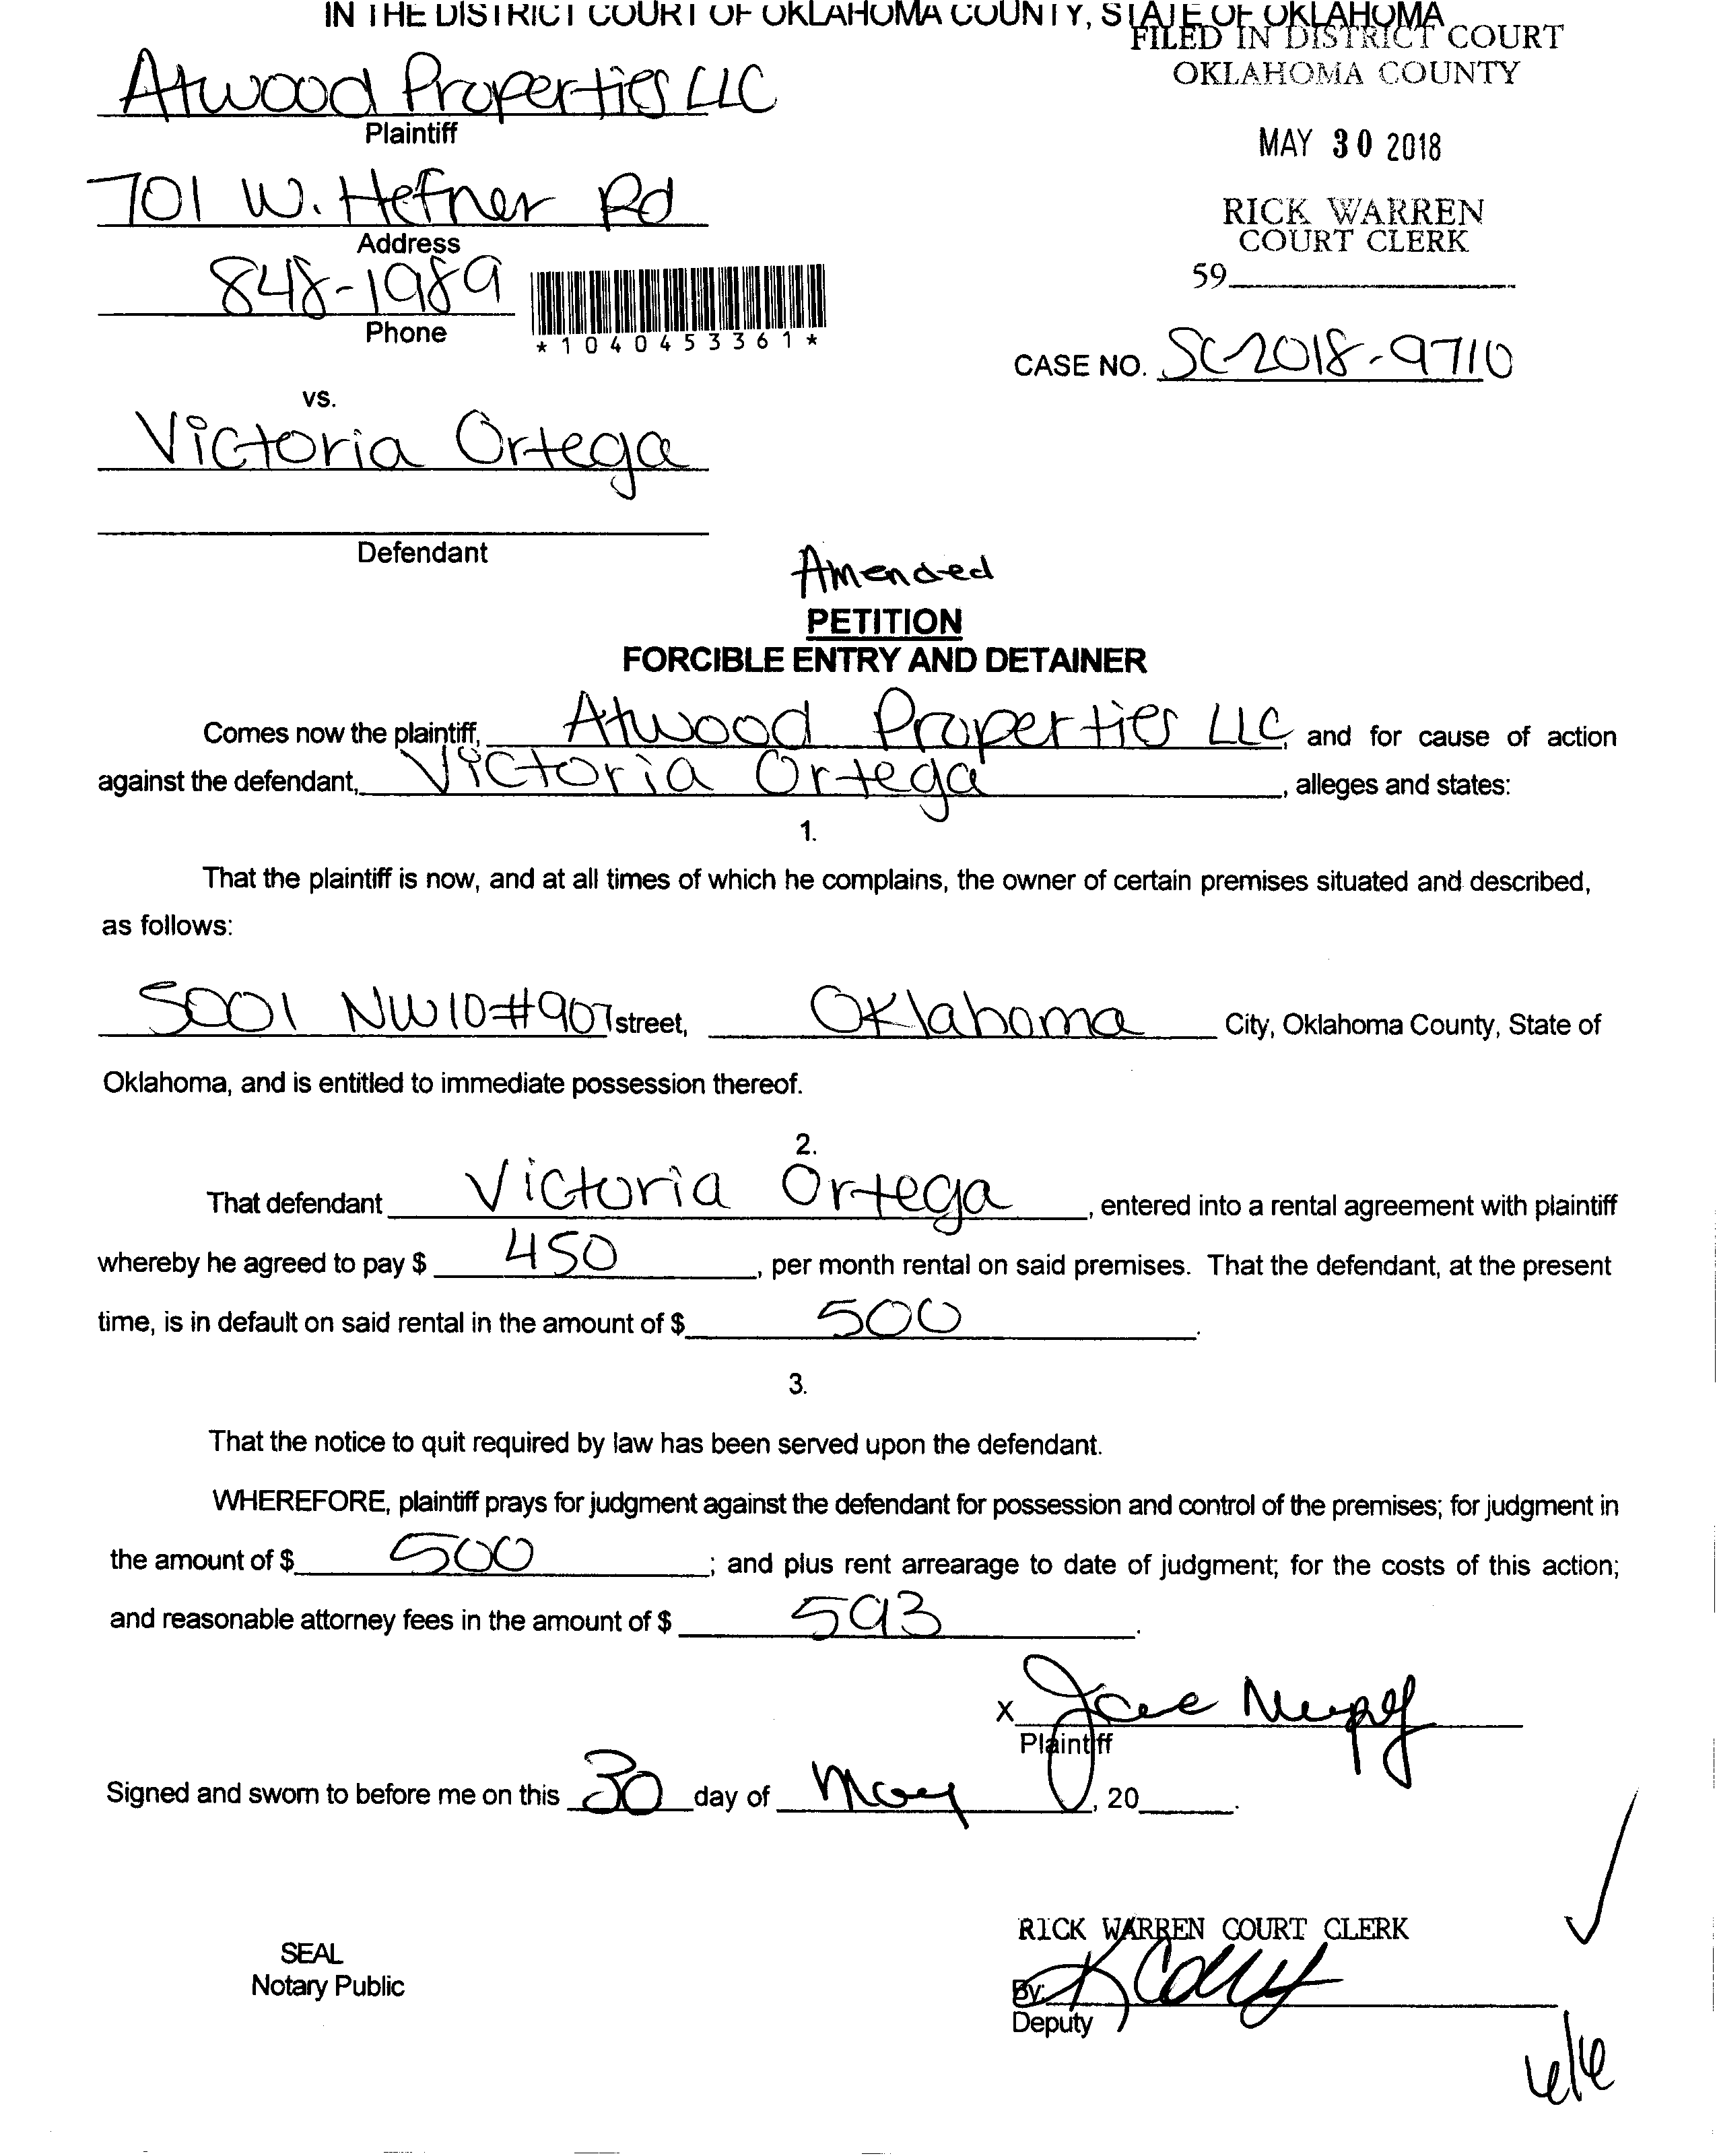 IN THE DISTRICT COURT OF OKLAHOMA COUNTY, STATE OF OKLAHOMA
FILED IN DISTRICT COURT
OKLAHOMA COUNTY
Atwood Properties LLC
Plaintiff
MAY 30 2018
701 W. Hefner Rd
Address
RICK WARREN
COURT CLERK
848-1989
Phone
*1040453361*
59
CASE NO. SC-2018-9710
vs.
Victoria Ortega
Defendant
Amended
PETITION
FORCIBLE ENTRY AND DETAINER
Comes now the plaintiff, Atwood Properties LLC, and for cause of action
against the defendant, Victoria Ortega, alleges and states:
1.
That the plaintiff is now, and at all times of which he complains, the owner of certain premises situated and described,
as follows:
5001 NW10#907 street, Oklahoma City, Oklahoma County, State of
Oklahoma, and is entitled to immediate possession thereof.
2.
That defendant Victoria Ortega, entered into a rental agreement with plaintiff
whereby he agreed to pay $ 450, per month rental on said premises. That the defendant, at the present
time, is in default on said rental in the amount of $ 500.
3.
That the notice to quit required by law has been served upon the defendant.
WHEREFORE, plaintiff prays for judgment against the defendant for possession and control of the premises; for judgment in
the amount of $ 500; and plus rent arrearage to date of judgment; for the costs of this action;
and reasonable attorney fees in the amount of $ 593.
X
Plaintiff
Signed and sworn to before me on this 30 day of May, 20 .
RICK WARREN COURT CLERK
SEAL
Notary Public
By:
Deputy